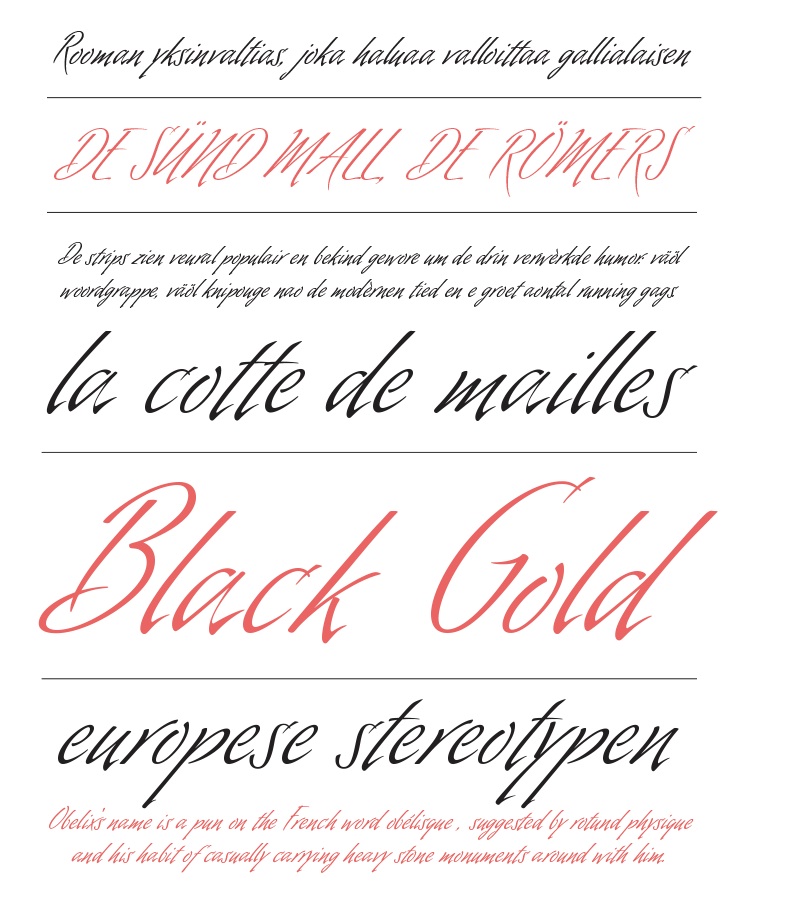 Rooman yksinvaltias, joka haluaa valloittaa gallialaisen
DE SÜND MALL, DE RÖMERS
De strips zien veural populair en bekind gewore um de drin verwèrkde humor: väöl
woordgrappe, väöl knipouge nao de modèrnen tied en e groet aontal running gags
la cotte de mailles
Black Gold
europese stereotypen
Obelix's name is a pun on the French word obélisque , suggested by rotund physique
and his habit of casually carrying heavy stone monuments around with him.